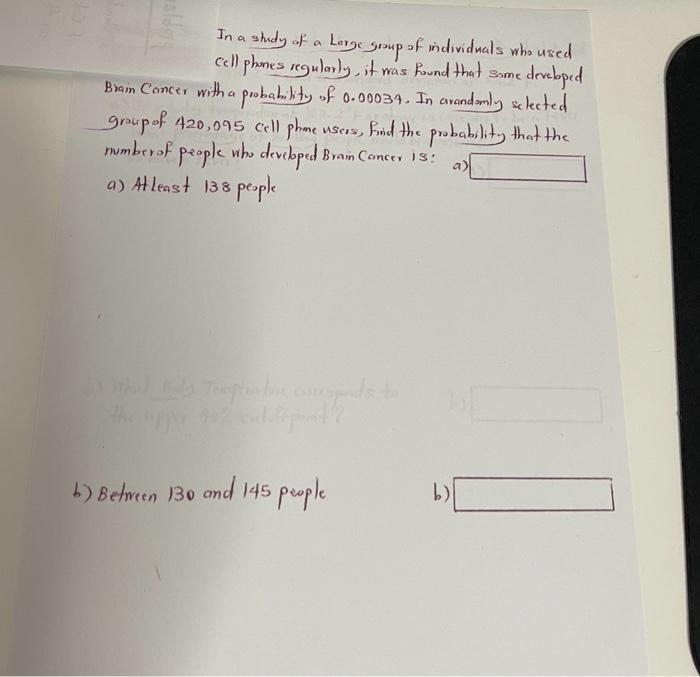 In a study of a Large group of individuals who used
cell phones regularly, it was found that some developed
Brain Cancer with a probability of 0.00034. In a randomly selected
group of 420,095 cell phone users, find the probability that the
number of people who developed Brain Cancer is: a)
a) At least 138 people
b) What Body Temperature corresponds to
the upper 90% cutoff point? b)
b) Between 130 and 145 people b)